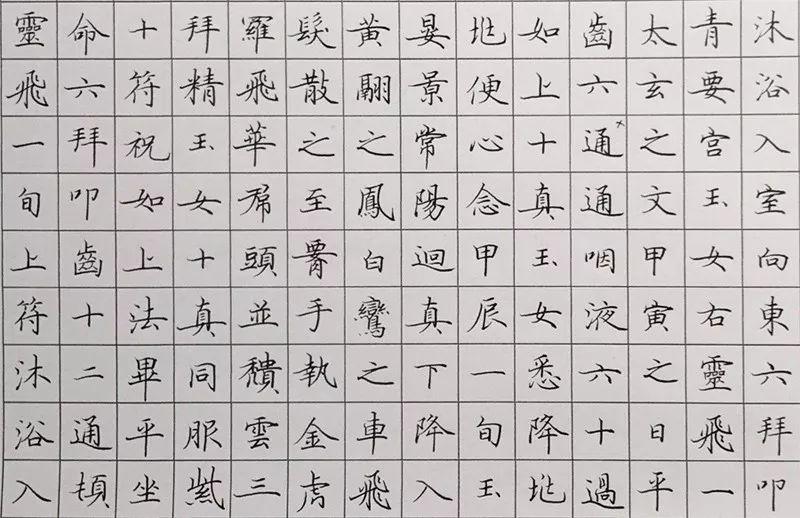 沐浴入室向東六拜叩
青要宮玉女右靈飛一
太玄之文甲寅之日平
齒六通通咽液六十過
如上十真玉女悉降
便心念甲辰一旬玉
晏景常陽迴真下降入
黃翮之鳳白鸞之車飛
髮散之至手執金虎
羅飛華帬頭並穨雲三
拜精玉女十真同服紫
十符祝如上法畢平坐
命六拜叩齒十二通頓
靈飛一旬上符沐浴入